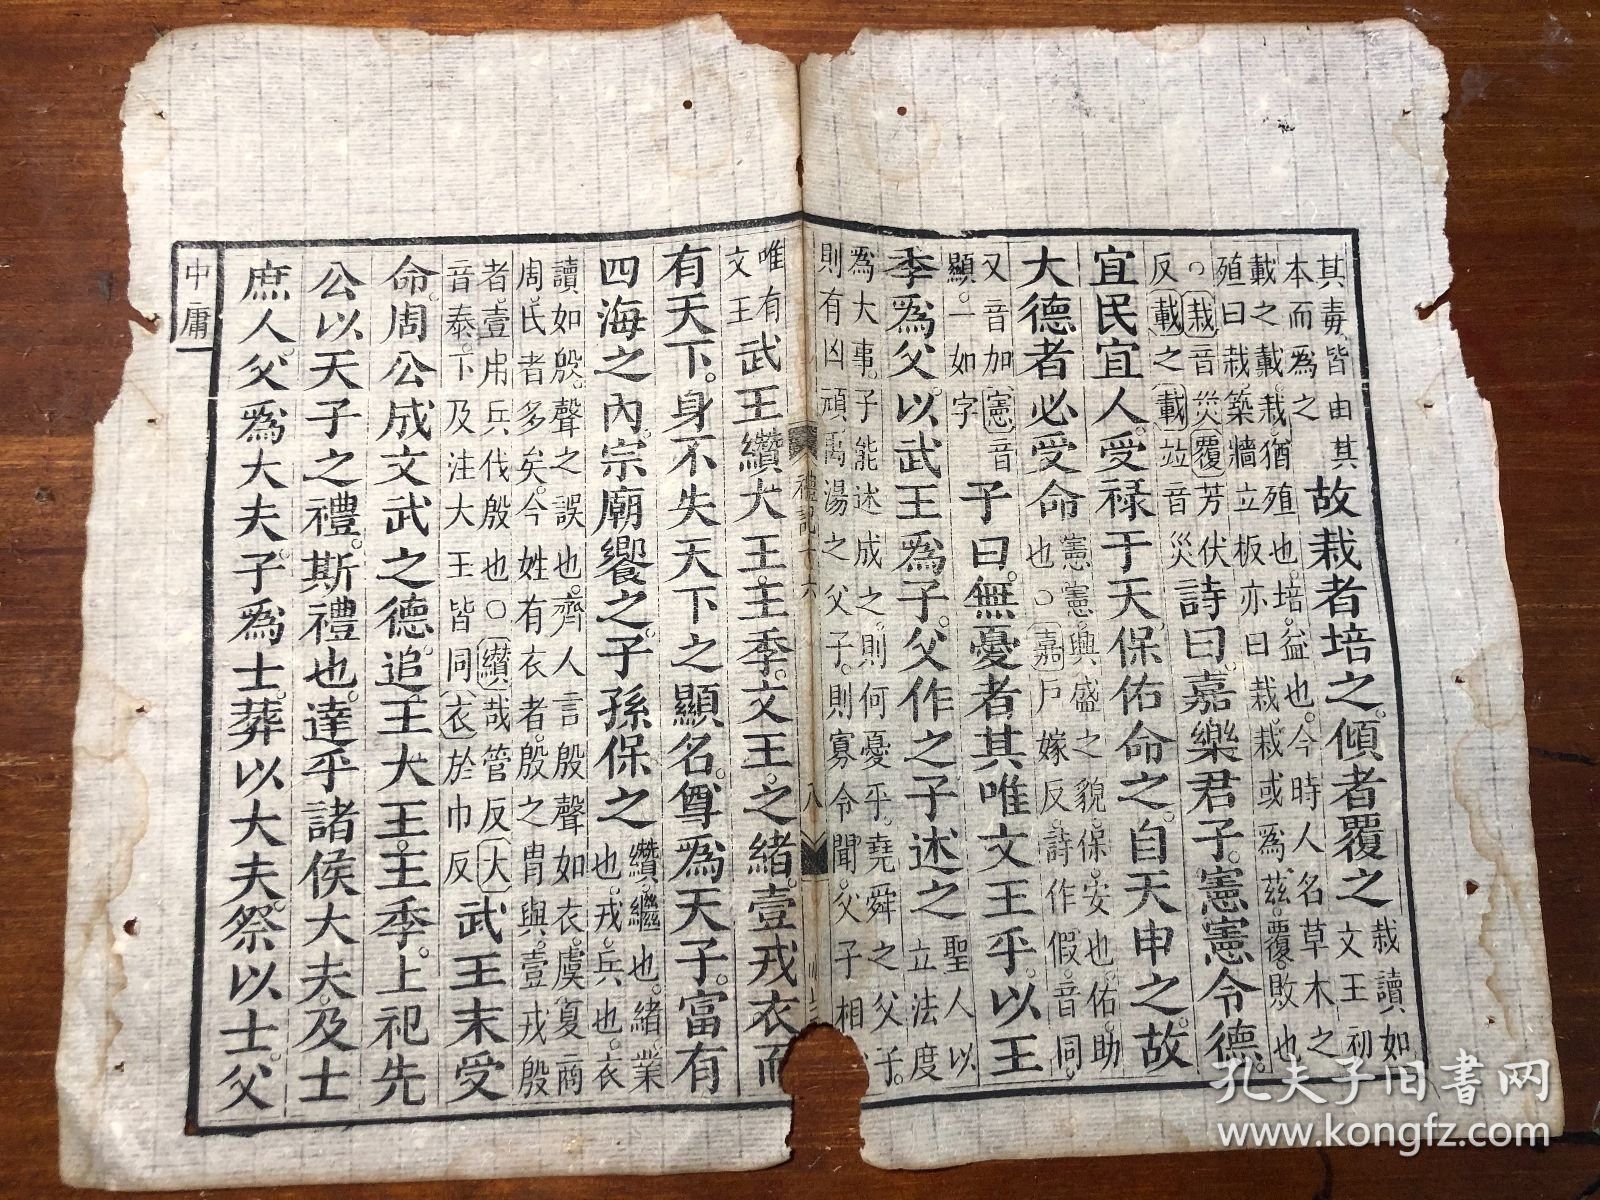 其毒皆由其本而爲之故栽者培之。傾者覆之栽讀如文王初
載之載。栽猶殖也。培。益也。今時人名草木之殖曰栽。築牆立板亦曰栽。栽或爲茲。覆。敗也
○栽音災覆芳伏反載之載竝音災詩曰。嘉樂君子。憲憲令德。
宜民宜人。受禄于天。保佑命之。自天申之。故
大德者必受命憲憲。興盛之貌。保。安也。佑。助也。○嘉戶嫁反。詩作假。音同。
又音加憲音顯。一如字子曰。無憂者。其唯文王乎。以王
季爲父。以武王爲子。父作之。子述之聖人以立法度
爲大事。子能述成之。則何憂乎。堯舜之父子。則有凶頑。禹湯之父子。則寡令聞。父子相
禮記十六 八
唯有文王武王纘大王。王季。文王之緒。壹戎衣而
有天下。身不失天下之顯名。尊爲天子。富有
四海之內。宗廟饗之。子孫保之纘。繼也。緒。業也。戎。兵也。衣
讀如殷。聲之誤也。齊人言殷聲如衣。虞夏商周氏者多矣。今姓有衣者。殷之冑與。壹戎殷
者。壹用兵伐殷也○纘哉管反大音泰。下及注大王皆同衣於巾反武王末受
命。周公成文武之德。追王大王。王季。上祀先
公以天子之禮。斯禮也。達乎諸侯大夫。及士
庶人。父爲大夫。子爲士。葬以大夫。祭以士。父
中庸
孔夫子旧書网
www.kongfz.com